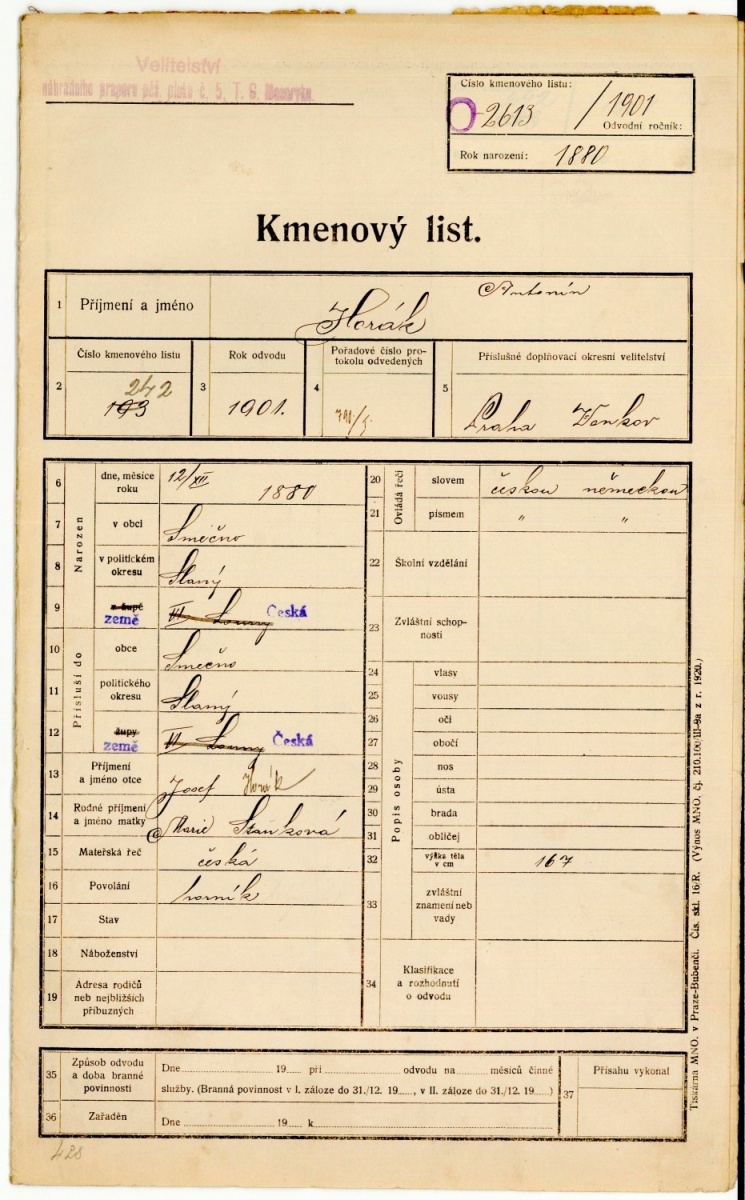 Velitelství
náhradního praporu pěš. pluku č. 5, T. G. Masaryka.
Číslo kmenového listu:
2613 / 1901
Odvodní ročník:
Rok narození: 1880
Kmenový list.
1 Příjmení a jméno Horák Antonín
Číslo kmenového listu
Rok odvodu
Pořadové číslo pro-
tokolu odvedených
Příslušné doplňovací okresní velitelství
2 193 242
3 1901.
4
5 Praha Venkov
Narozen
6 dne, měsíce
roku
12/XII 1880
7 v obci Smečno
8 v politickém
okresu
Slaný
9 v župě
země
VI Louny Česká
Přísluší do
10 obce Smečno
11 politického
okresu
Slaný
12 župy
země
VI Louny Česká
13 Příjmení
a jméno otce
Josef Horák
14 Rodné příjmení
a jméno matky
Marie Staňková
15 Mateřská řeč česká
16 Povolání horník
17 Stav
18 Náboženství
19 Adresa rodičů
neb nejbližších
příbuzných
Ovládá řeči
20 slovem českou německou
21 písmem " "
22 Školní vzdělání
23 Zvláštní schop-
nosti
Popis osoby
24 vlasy
25 vousy
26 oči
27 obočí
28 nos
29 ústa
30 brada
31 obličej
32 výška těla
v cm
167
33 zvláštní
znamení neb
vady
34 Klasifikace
a rozhodnutí
o odvodu
35 Způsob odvodu
a doba branné
povinnosti
Dne 19 při odvodu na měsíců činné
služby. (Branná povinnost v I. záloze do 31./12. 19, v II. záloze do 31./12. 19)
36 Zařaděn
Dne 19 k
37 Přísahu vykonal
Tiskárna MNO. v Praze-Bubenči. Čís. skl. 16/R. (Výnos MNO. čj. 210.100/III-9a z r. 1920.)
428